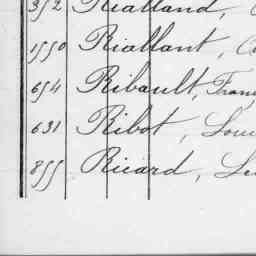 352 Rialland,
1550 Riallant,
654 Ribault, Fran
631 Ribot, Loui
855 Ricard,